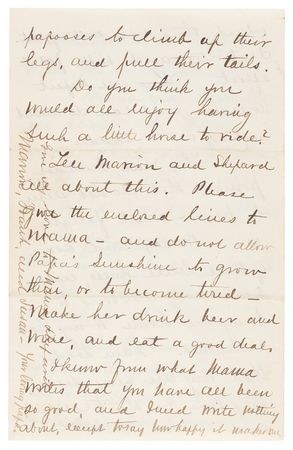 papooses to climb up their
legs, and pull their tails.
Do you think you
would all enjoy having
such a little horse to ride?
Tell Marion and Shepard
all about this. Please
give the enclosed lines to
Mama – and do not allow
Papa's Sunshine to grow
thin, or to become tired –
Make her drink beer and
wine, and eat a good deal.
I know from what Mama
writes that you have all been
so good, and I need write nothing
about, except to say how happy it makes me.
love to Mama
Marion, and Susan – Your loving papa